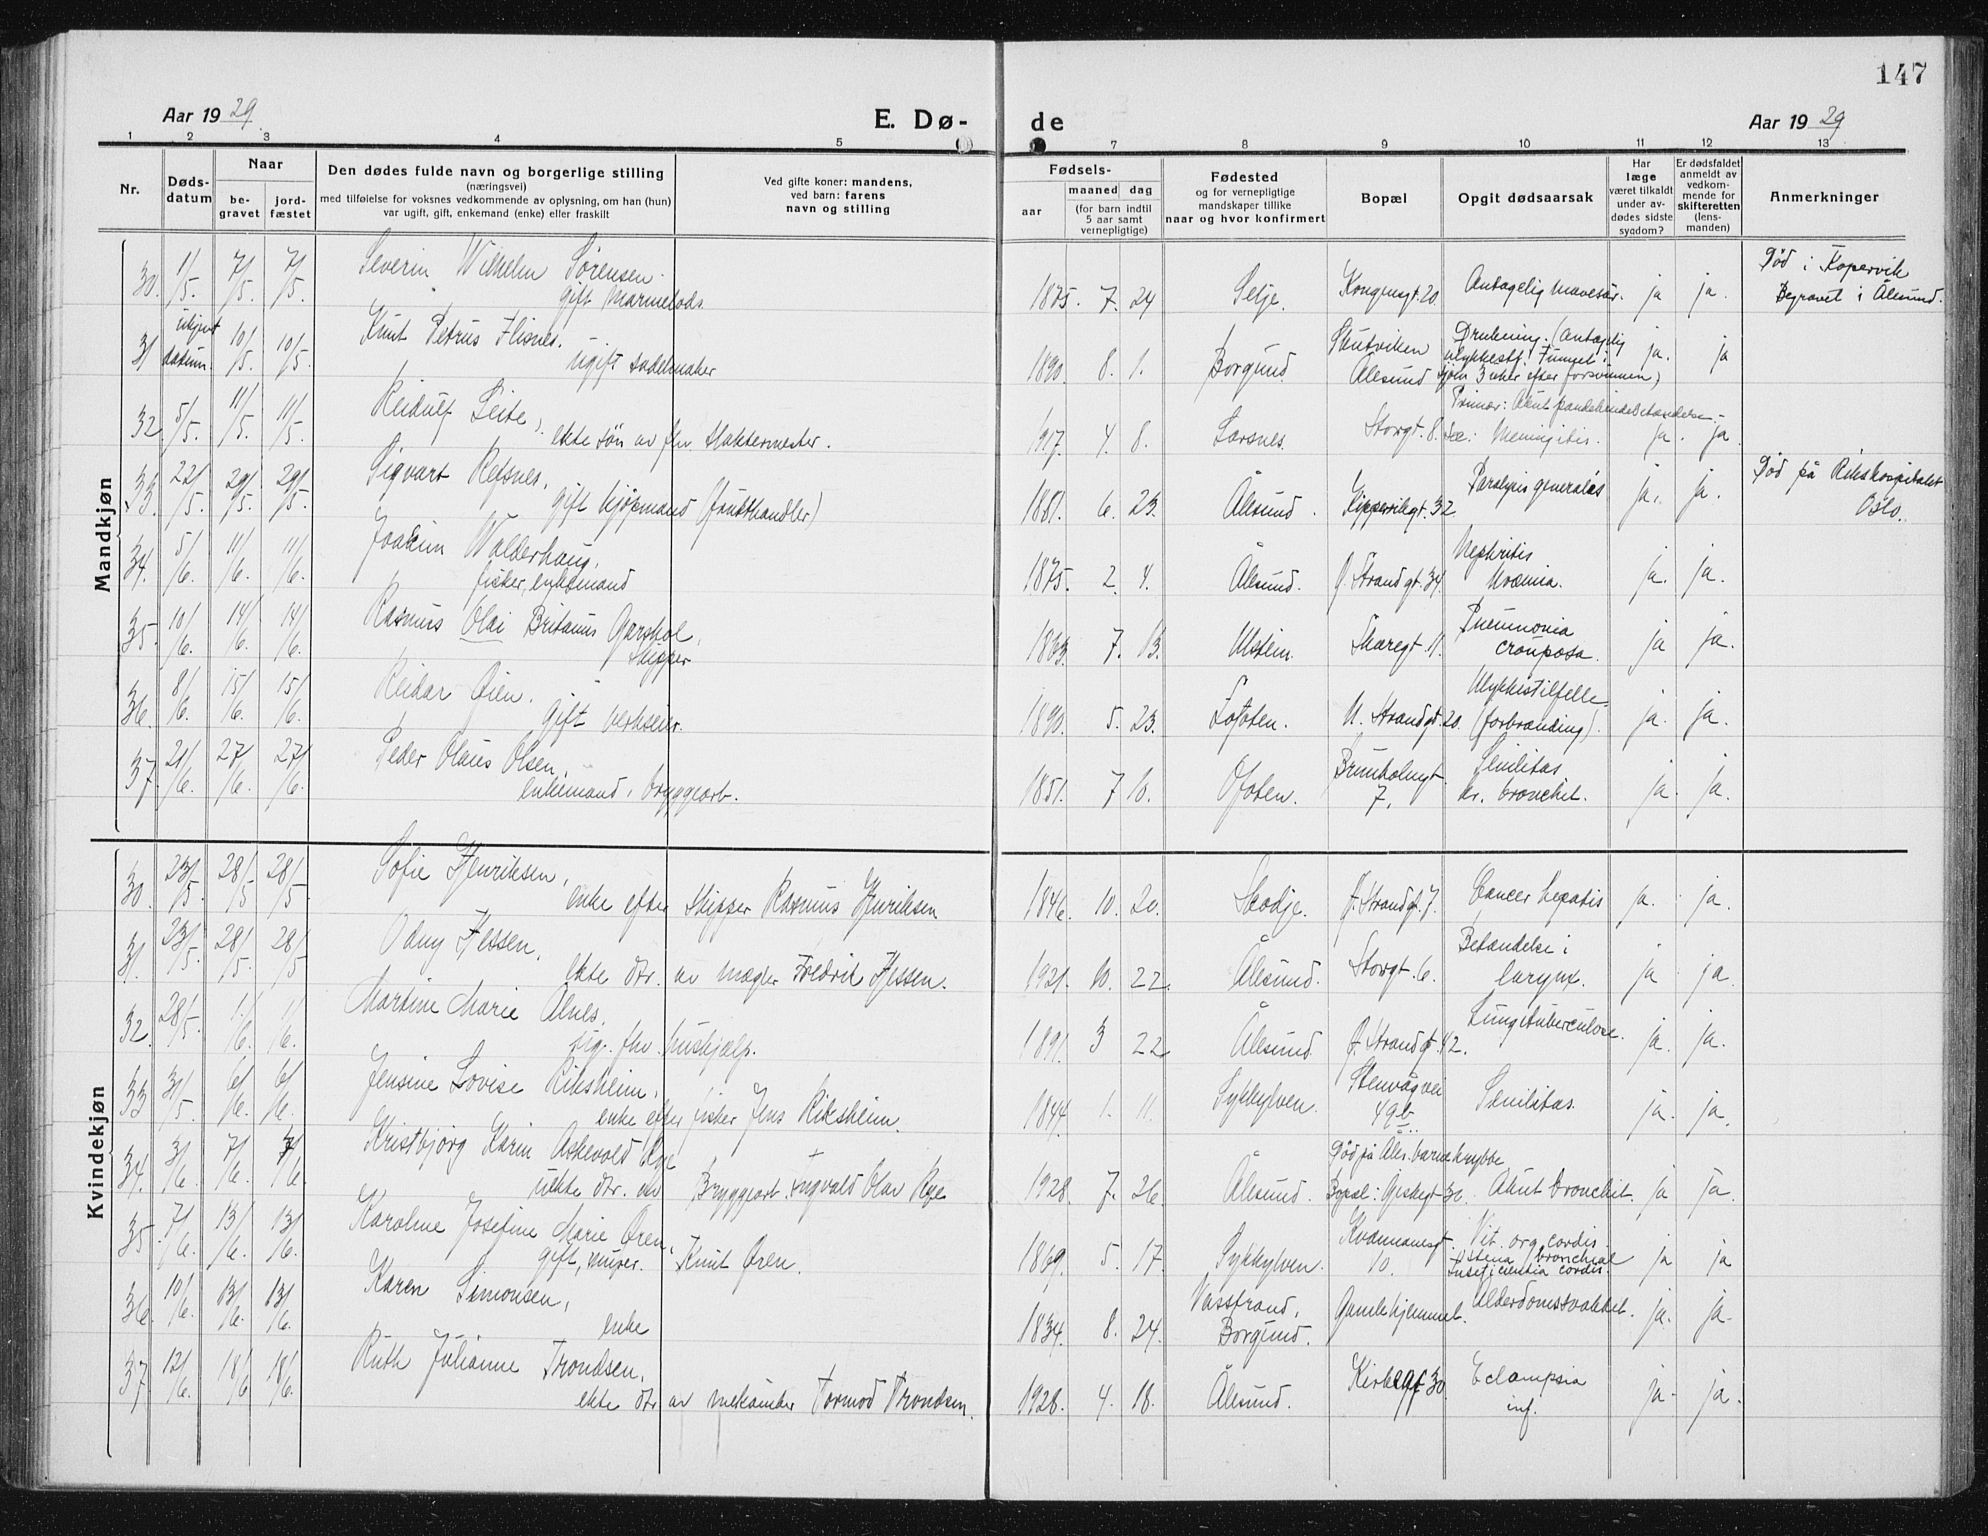 147
Aar 1929.
E. Dø-
de
Aar 1929
1 2 3 4 5 7 8 9 10 11 12 13
Nr.
Døds-
datum
Naar
be-
gravet
jord-
fæstet
Den dødes fulde navn og borgerlige stilling
(næringsvei)
med tilføielse for voksnes vedkommende av oplysning, om han (hun)
var ugift, gift, enkemand (enke) eller fraskilt
Ved gifte koner: mandens,
ved barn: farens
navn og stilling
Fødsels-
aar
maaned dag
(for barn indtil
5 aar samt
vernepligtige)
Fødested
og for vernepligtige
mandskaper tillike
naar og hvor konfirmert
Bopæl
Opgit dødsaarsak
Har
læge
været tilkaldt
under av-
dødes sidste
sygdom?
Er dødsfaldet
anmeldt av
vedkom-
mende for
skifteretten
(lens-
manden)
Anmerkninger
Mandkjøn
30. 1/5. 7/5. 7/5. Severin Wilhelm Sörensen.
gift 1875. 7. 24 Selje. Kongensgt. 20. Antagelig mavesår. ja ja. Död i Kopervik
Begravet i Ålesund.
31 ukjent
datum. 10/5. 10/5. Knut Petrus Flisnes.
ugift sadelmaker 1890. 8. 1. Borgund Skutviken
Ålesund Drukning. (Antagelig
ulykkestf. Funnet i
sjöen 3 uker efter forsvinnen) ja. ja
32 5/5. 11/5. 11/5. Reidulf Leite,
ekte sön av fhv. slaktermester. 1917. 4. 8. Larsnes. Storgt. 8. Primær: Akut pandehulebetændelse -
Sec: Meningitis. ja. ja.
33. 22/5. 29/5. 29/5. Sigvart Refsnes,
gift kjöpmand (frukthandler) 1881. 6. 23. Ålesund. Kippervikgt. 32 Paralysis generalis ja. ja. Död på Rikshospitalet
Oslo.
34. 5/6. 11/6. 11/6. Joakim Walderhaug,
fisker, enkemand 1875. 2. 4. Ålesund. Ø. Strandgt. 34. Nephritis
Uræmia. ja. ja.
35. 10/6. 14/6. 14/6. Rasmus Olai Britanus Garshol,
skipper 1863. 7. 13. Ulstein. Skaregt. 11. Pneumonia
crouposa. ja ja.
36. 8/6. 15/6. 15/6. Reidar Øien.
gift verkseier. 1890. 5. 23. Lofoten. N. Strandgt. 20. Ulykkestilfelle.
(forbrænding). ja. ja.
37. 21/6. 27/6. 27/6. Peder Olaus Olsen,
enkemand, bryggearb. 1851. 7 10. Ofoten. Brunholmgt.
7. Senilitas
kr. bronchit. ja. ja.
Kvindekjøn
30 23/5. 28/5 28/5 Sofie Henriksen,
enke efter skipper Rasmus Henriksen 1846. 10. 20. Skodje. Ø. Strandgt. 7. Cancer hepatis ja. ja.
31. 23/5. 28/5. 28/5 Odny Hessen,
ekte dtr. av mægler Fredrik Hessen. 1921. 10. 22. Ålesund. Storgt. 6. Betændelse i
larynx. ja ja.
32. 28/5. 1/6. 1/6. Martine Marie Alnes,
fhv. hushjælp. 1891. 3 22 Ålesund. Ø. Strandgt. 42. Lungetuberculose. ja. ja.
33 31/5 6/6 6/6. Jensine Lovise Riksheim,
enke efter fisker Jens Riksheim. 1844. 1. 11. Sykkylven. Stenvågvei
49b. Senilitas. ja. ja.
34. 3/6 7/6 7/6. Kristbjörg Karin Askevold Rye
uekte dtr. av Bryggearb. Ingvald Olav Rye 1928. 7. 26. Ålesund. Död på Åles. barnekrybbe
Bopæl: Giskegt. 30. Akut bronchit. ja ja.
35. 7/6. 13/6. 13/6. Karoline Josefine Marie Ören,
gift, murer. Knut Ören. 1869. 5. 17. Sykkylven. 10. Vit. org. cordis.
Astma bronchial
Insuficientia cordis. ja ja
36. 10/6. 13/6. 13/6. Karen Simonsen,
enke 1834. 8. 24. Vasstrand,
Borgund. Gamlehjemmet. Alderdomssvakket. ja. ja.
37 12/6. 18/6 18/6. Ruth Julianne Trondsen,
ekte dtr av mekaniker Tormod Trondsen. 1928. 4. 18. Ålesund. Kirkegt 30. Eclampsia
inf. ja. ja.